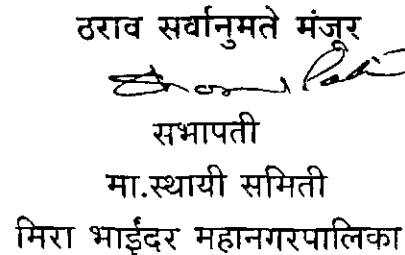 ठराव सर्वानुमते मंजूर
सभापती
मा.स्थायी समिती
मिरा भाईंदर महानगरपालिका